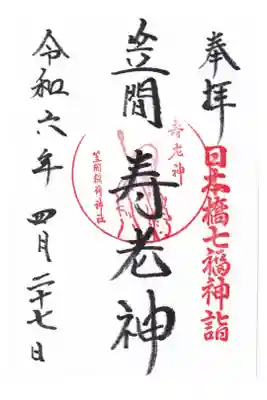 奉拝
日本橋七福神詣
笠間 寿老神
寿老神
笠間稲荷神社
令和六年 四月二十七日